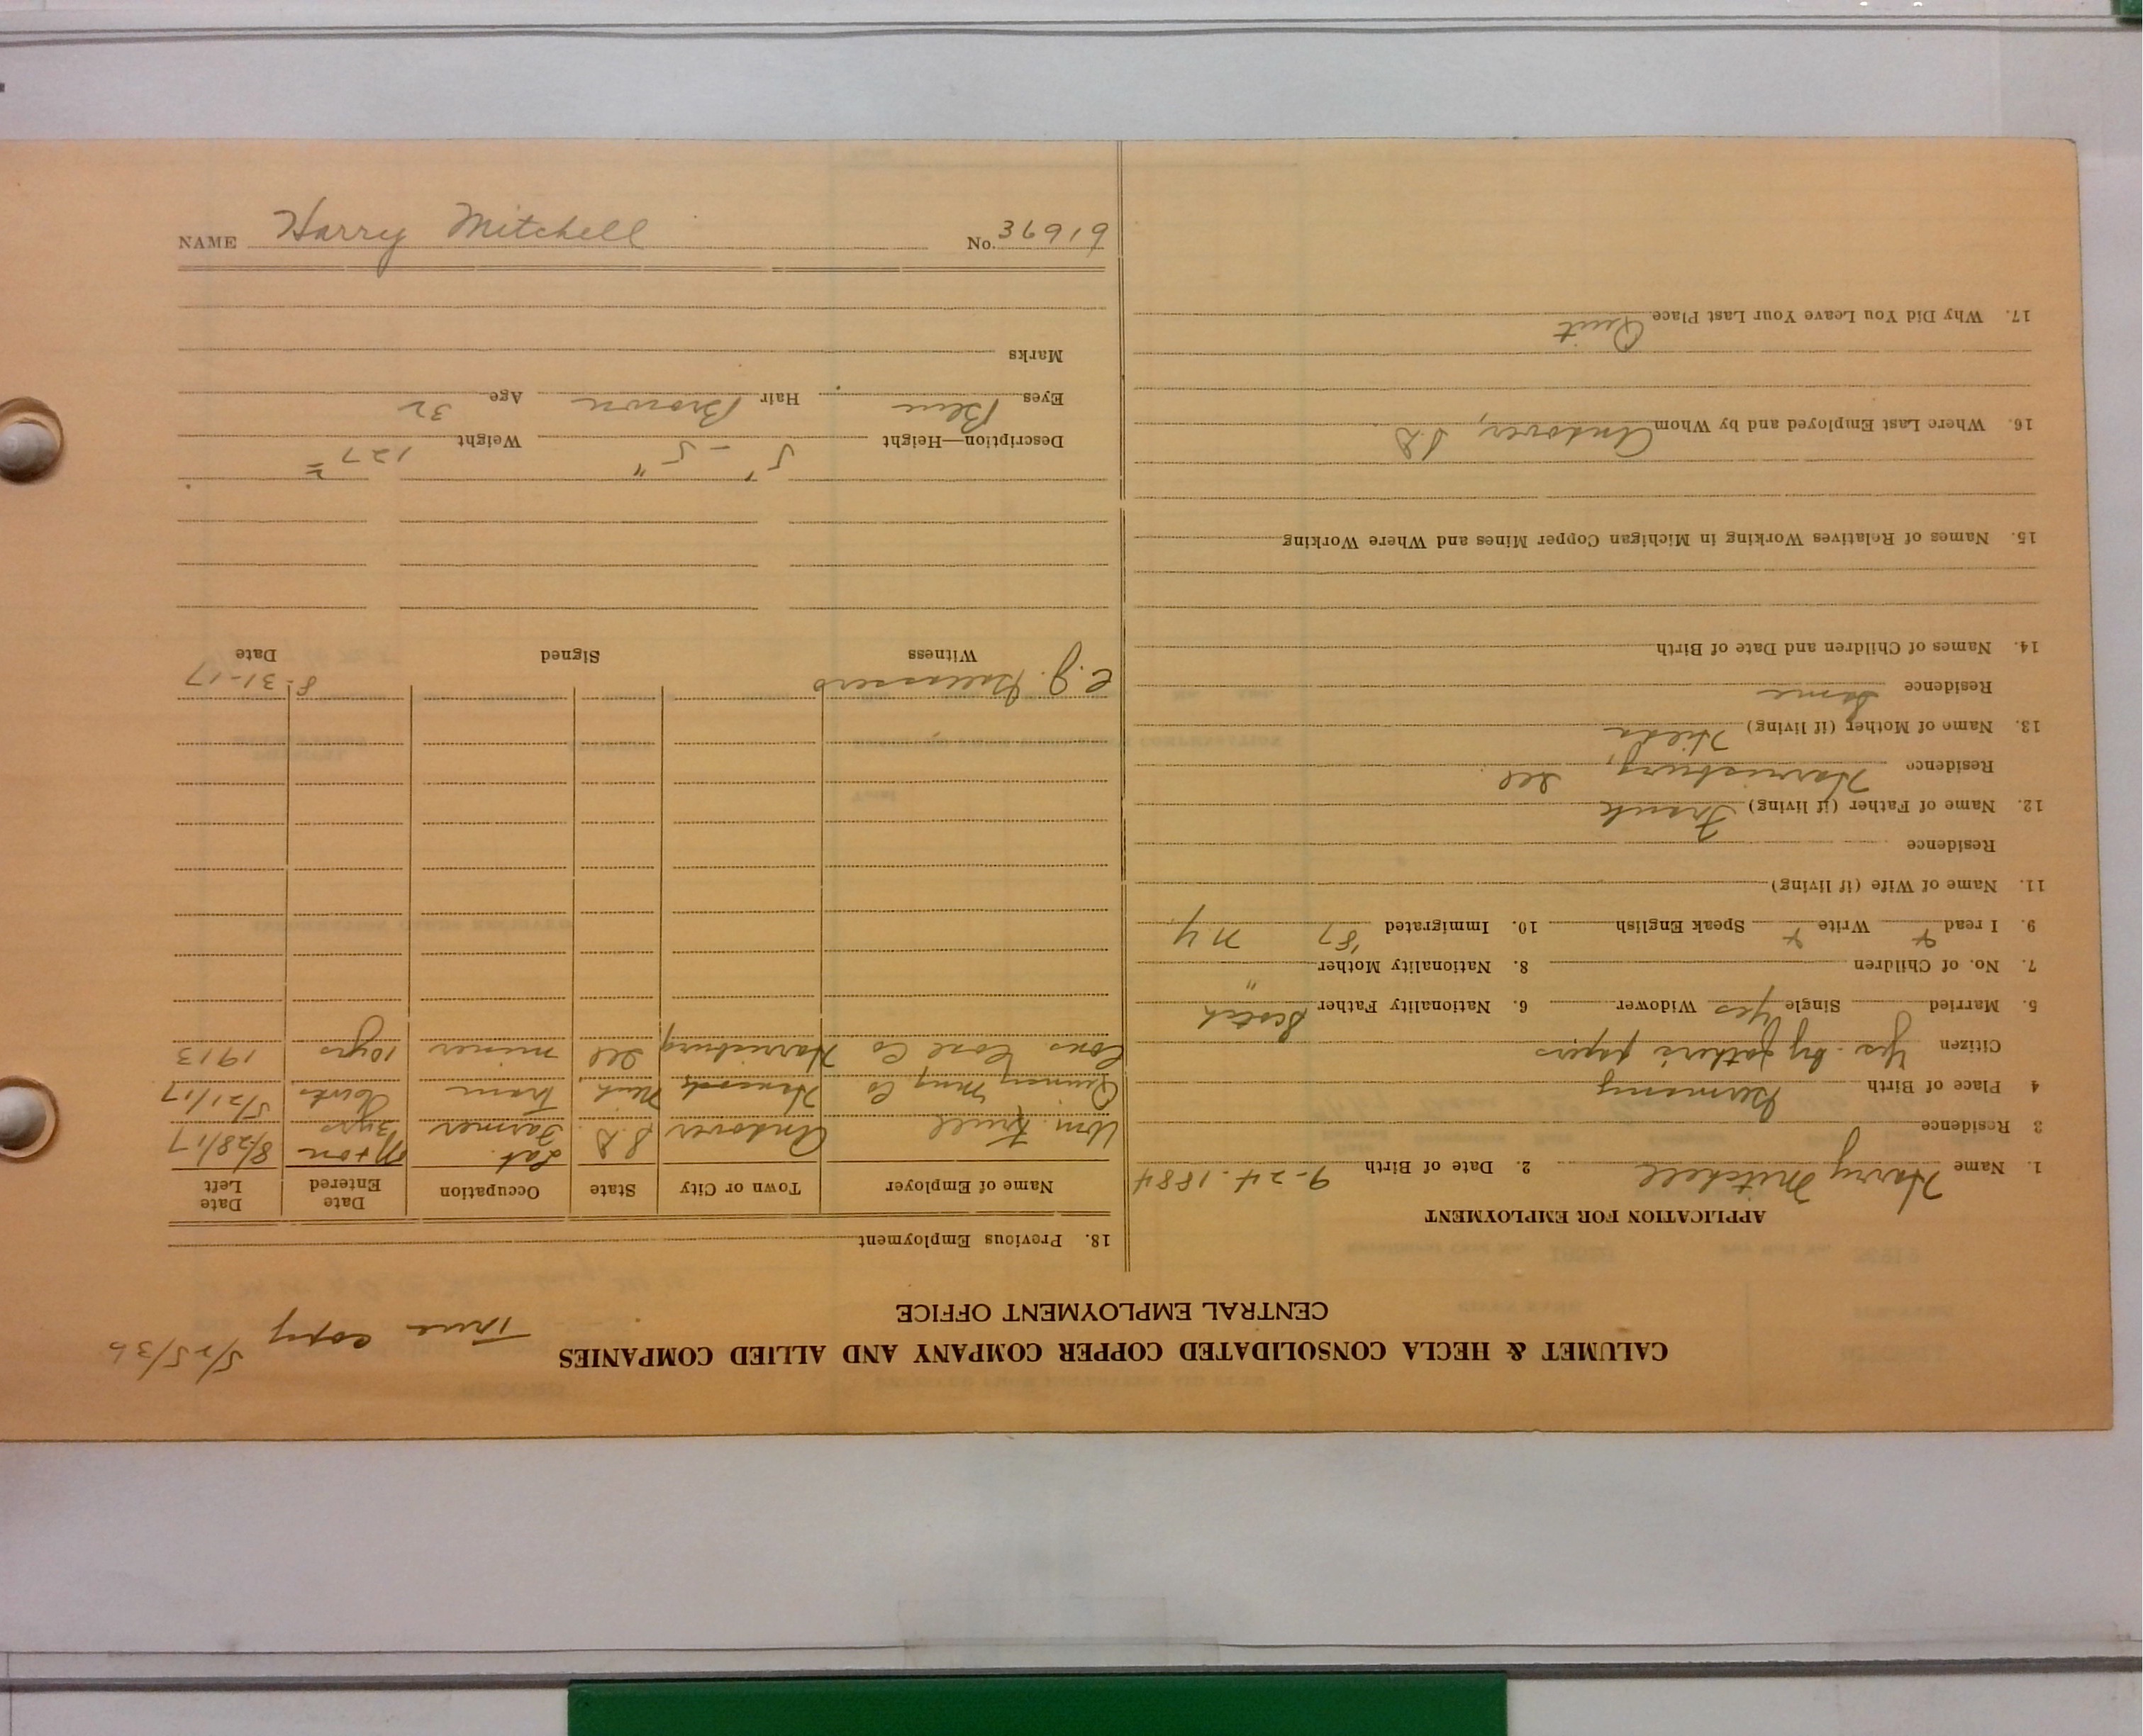 CALUMET & HECLA CONSOLIDATED COPPER COMPANY AND ALLIED COMPANIES
True copy 5/25/36
CENTRAL EMPLOYMENT OFFICE
APPLICATION FOR EMPLOYMENT
1. Name Harry Mitchell 2. Date of Birth 9-24-1884
3 Residence
4 Place of Birth Germany
Citizen Yes. by father's papers
5. Married Single Yes Widower 6. Nationality Father Scotch
7. No. of Children 8. Nationality Mother "
9. I read + Write + Speak English 10. Immigrated '87 N.Y.
11. Name of Wife (if living)
Residence
12. Name of Father (if living) Frank
Residence Harrisburg, Ill
13. Name of Mother (if living) Hilda
Residence Same
14. Names of Children and Date of Birth
15. Names of Relatives Working in Michigan Copper Mines and Where Working
16. Where Last Employed and by Whom Andover, S.D
17. Why Did You Leave Your Last Place Quit
18. Previous Employment
Name of Employer Town or City State Occupation Date Entered Date Left
Wm. Andover S.D. Lab. Farmer 3 yrs 8/28/17
Quincy Mng Co Hancock Mich Tram 5/21/17
Cons. Coal Co Harrisburg Ill miner 10 yrs 1913
C.J. 8-31-17
Witness Signed Date
Description—Height 5' - 5" Weight 127
Eyes Blue Hair Brown Age 32
Marks
NAME Harry Mitchell No. 36919